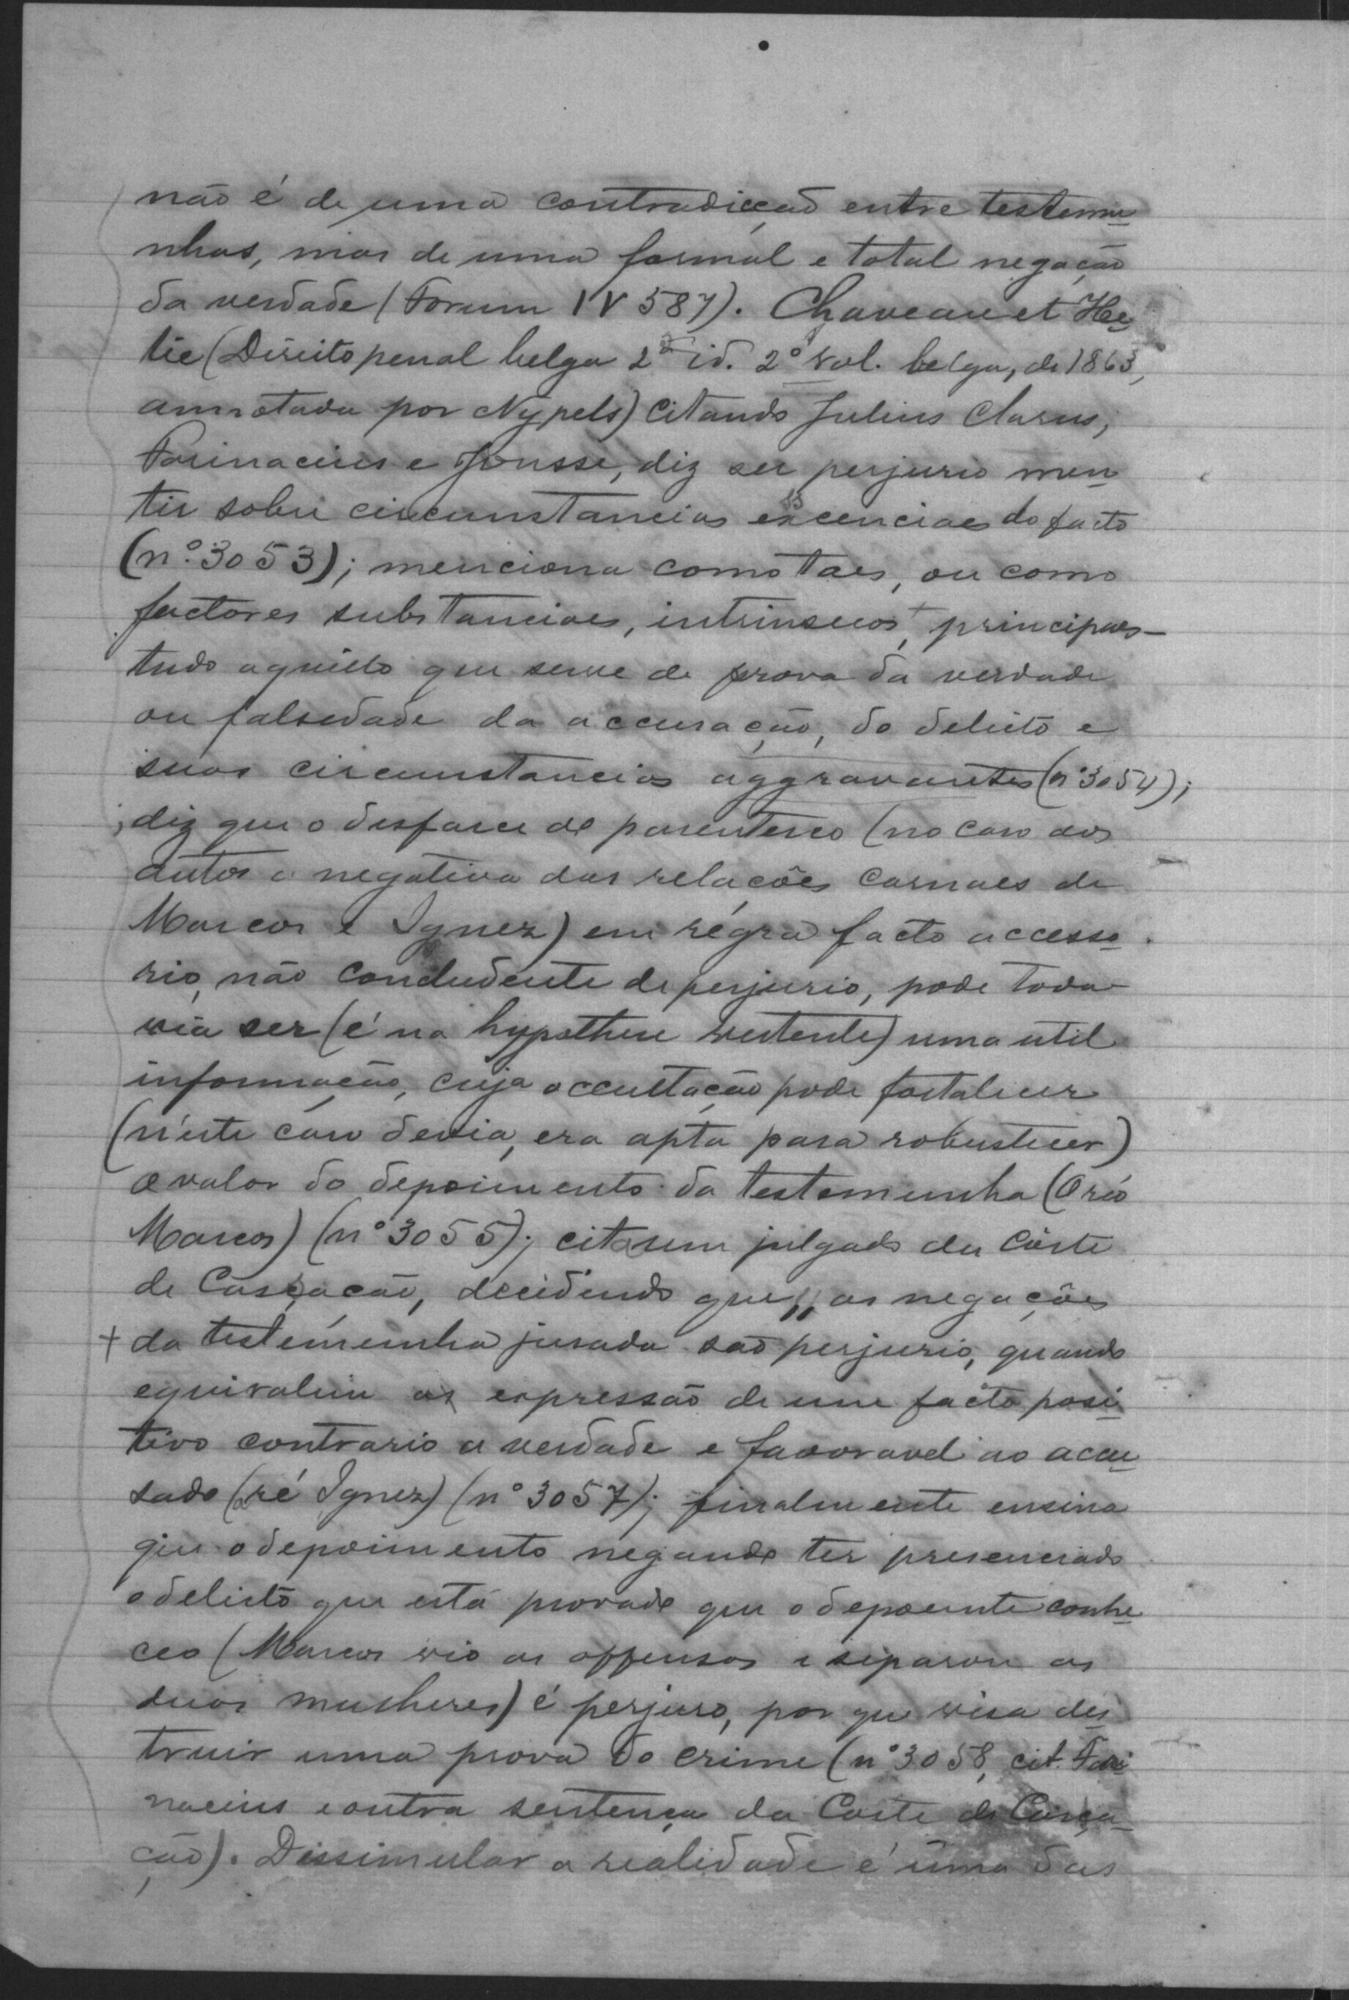 não é de uma contradicção entre testemu
nhas, mas de uma formal e total negação
da verdade (Forum IV 587). Chaveau et He
lie (Direito penal belga 2ª id. 2º vol. belga, de 1863,
annotada por Nypels) citando Julius Clarus,
Farinacius e Jousse, diz ser perjurio men
tir sobre circumstancias escenciaes do facto
(nº 3053); menciona como taes, ou como
factores substanciaes, intrinsecos, + principaes—
tudo aquillo que serve de prova da verdade
ou falsedade da accusação, do delicto e
suas circumstancias aggravantes (nº 3054);
diz que o disfarce de parentesco (no caso dos
autos a negativa das relações carnaes de
Marcos e Ignez) em régra facto accesso
rio, não concludente de perjurio, pode toda
via ser (é na hypothese vertente) uma util
informação, cuja occultação pode fortalecer
(n'este caso devia, era apta para robustecer)
o valor do depoimento da testemunha (O réo
Marcos) (nº 3055); cita um julgado da Côrte
de Cassação, decidindo que „ as negações
+ da testemunha jurada são perjurio, quando
equivalem a expressão de um facto posi
tivo contrario a verdade e favoravel ao accu
sado (ré Ignez) (nº 3057); finalmente ensina
que o depoimento negando ter presenciado
o delicto que está provado que o depoente conhe
ceo (Marcos vio as offensas e separou as
duas mulheres) é perjuro, por que visa des
truir uma prova do crime (nº 3058, cit. Fari
nacius e outra sentença da Corte de Cassa
ção). Dissimular a realidade é uma das